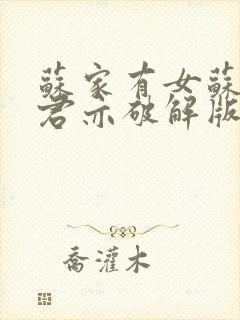 蘇家有女蘇
君亦破解版
喬灌木